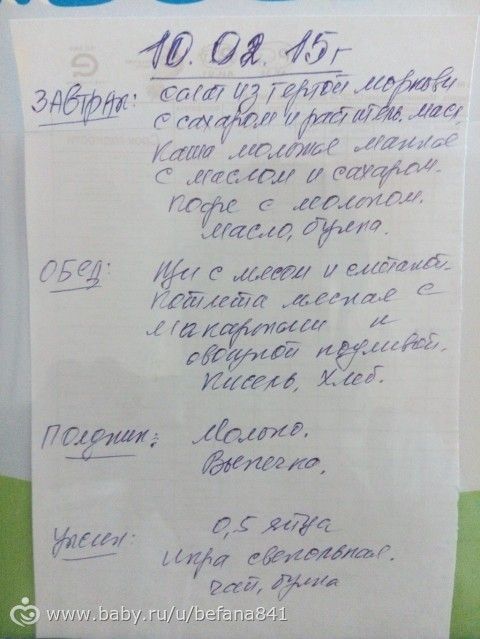 10.02.15г
ЗАВТРАК: салат из тертой моркови
с сахаром и растительн. масл
Каша молочная манная
с маслом и сахаром.
Кофе с молоком.
Масло, булка.
ОБЕД: Щи с мясом и сметаной.
Котлета мясная с
макаронами и
овощной подливой.
Кисель, хлеб.
Полдник: Молоко.
Выпечка.
Ужин: 0,5 яйца
Икра свекольная.
чай, булка
www.baby.ru/u/befana841